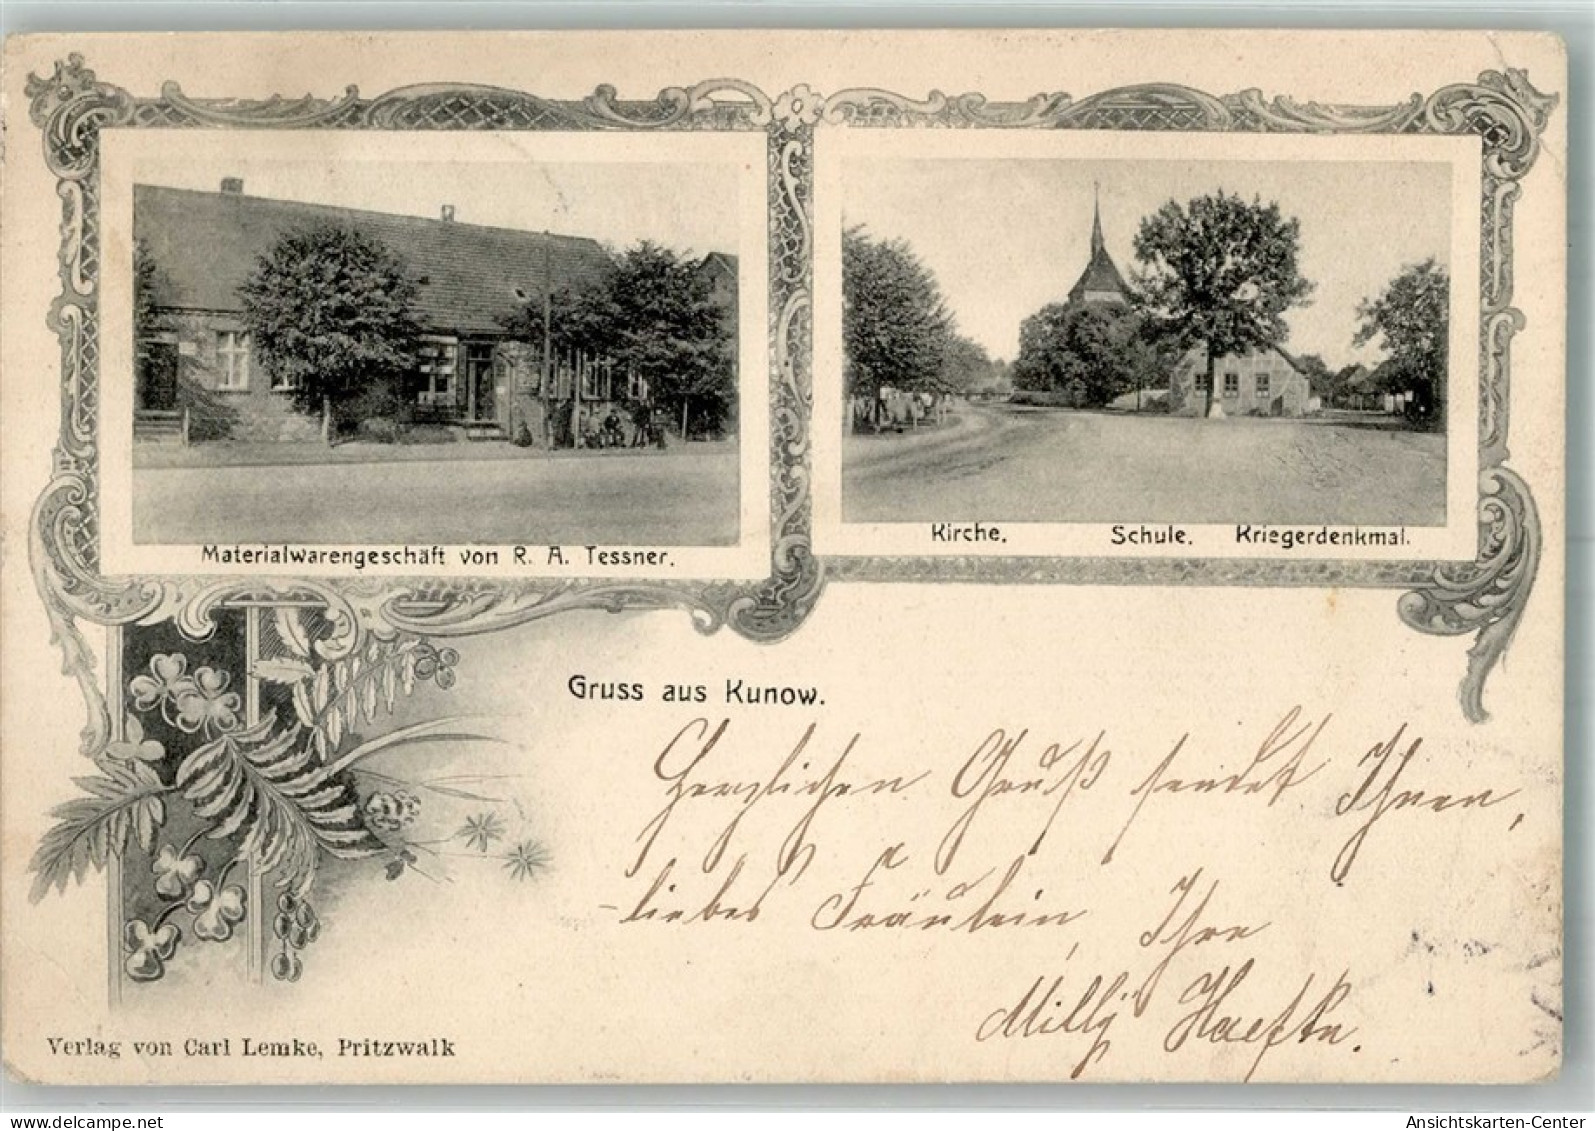 Materialwarengeschäft von R. A. Tessner.
Kirche. Schule. Kriegerdenkmal.
Gruss aus Kunow.
Herzlichen Gruß sendet Ihnen,
liebes Fräulein, Ihre
Milly
Verlag von Carl Lemke, Pritzwalk
delcampe.net
Ansichtskarten-Center